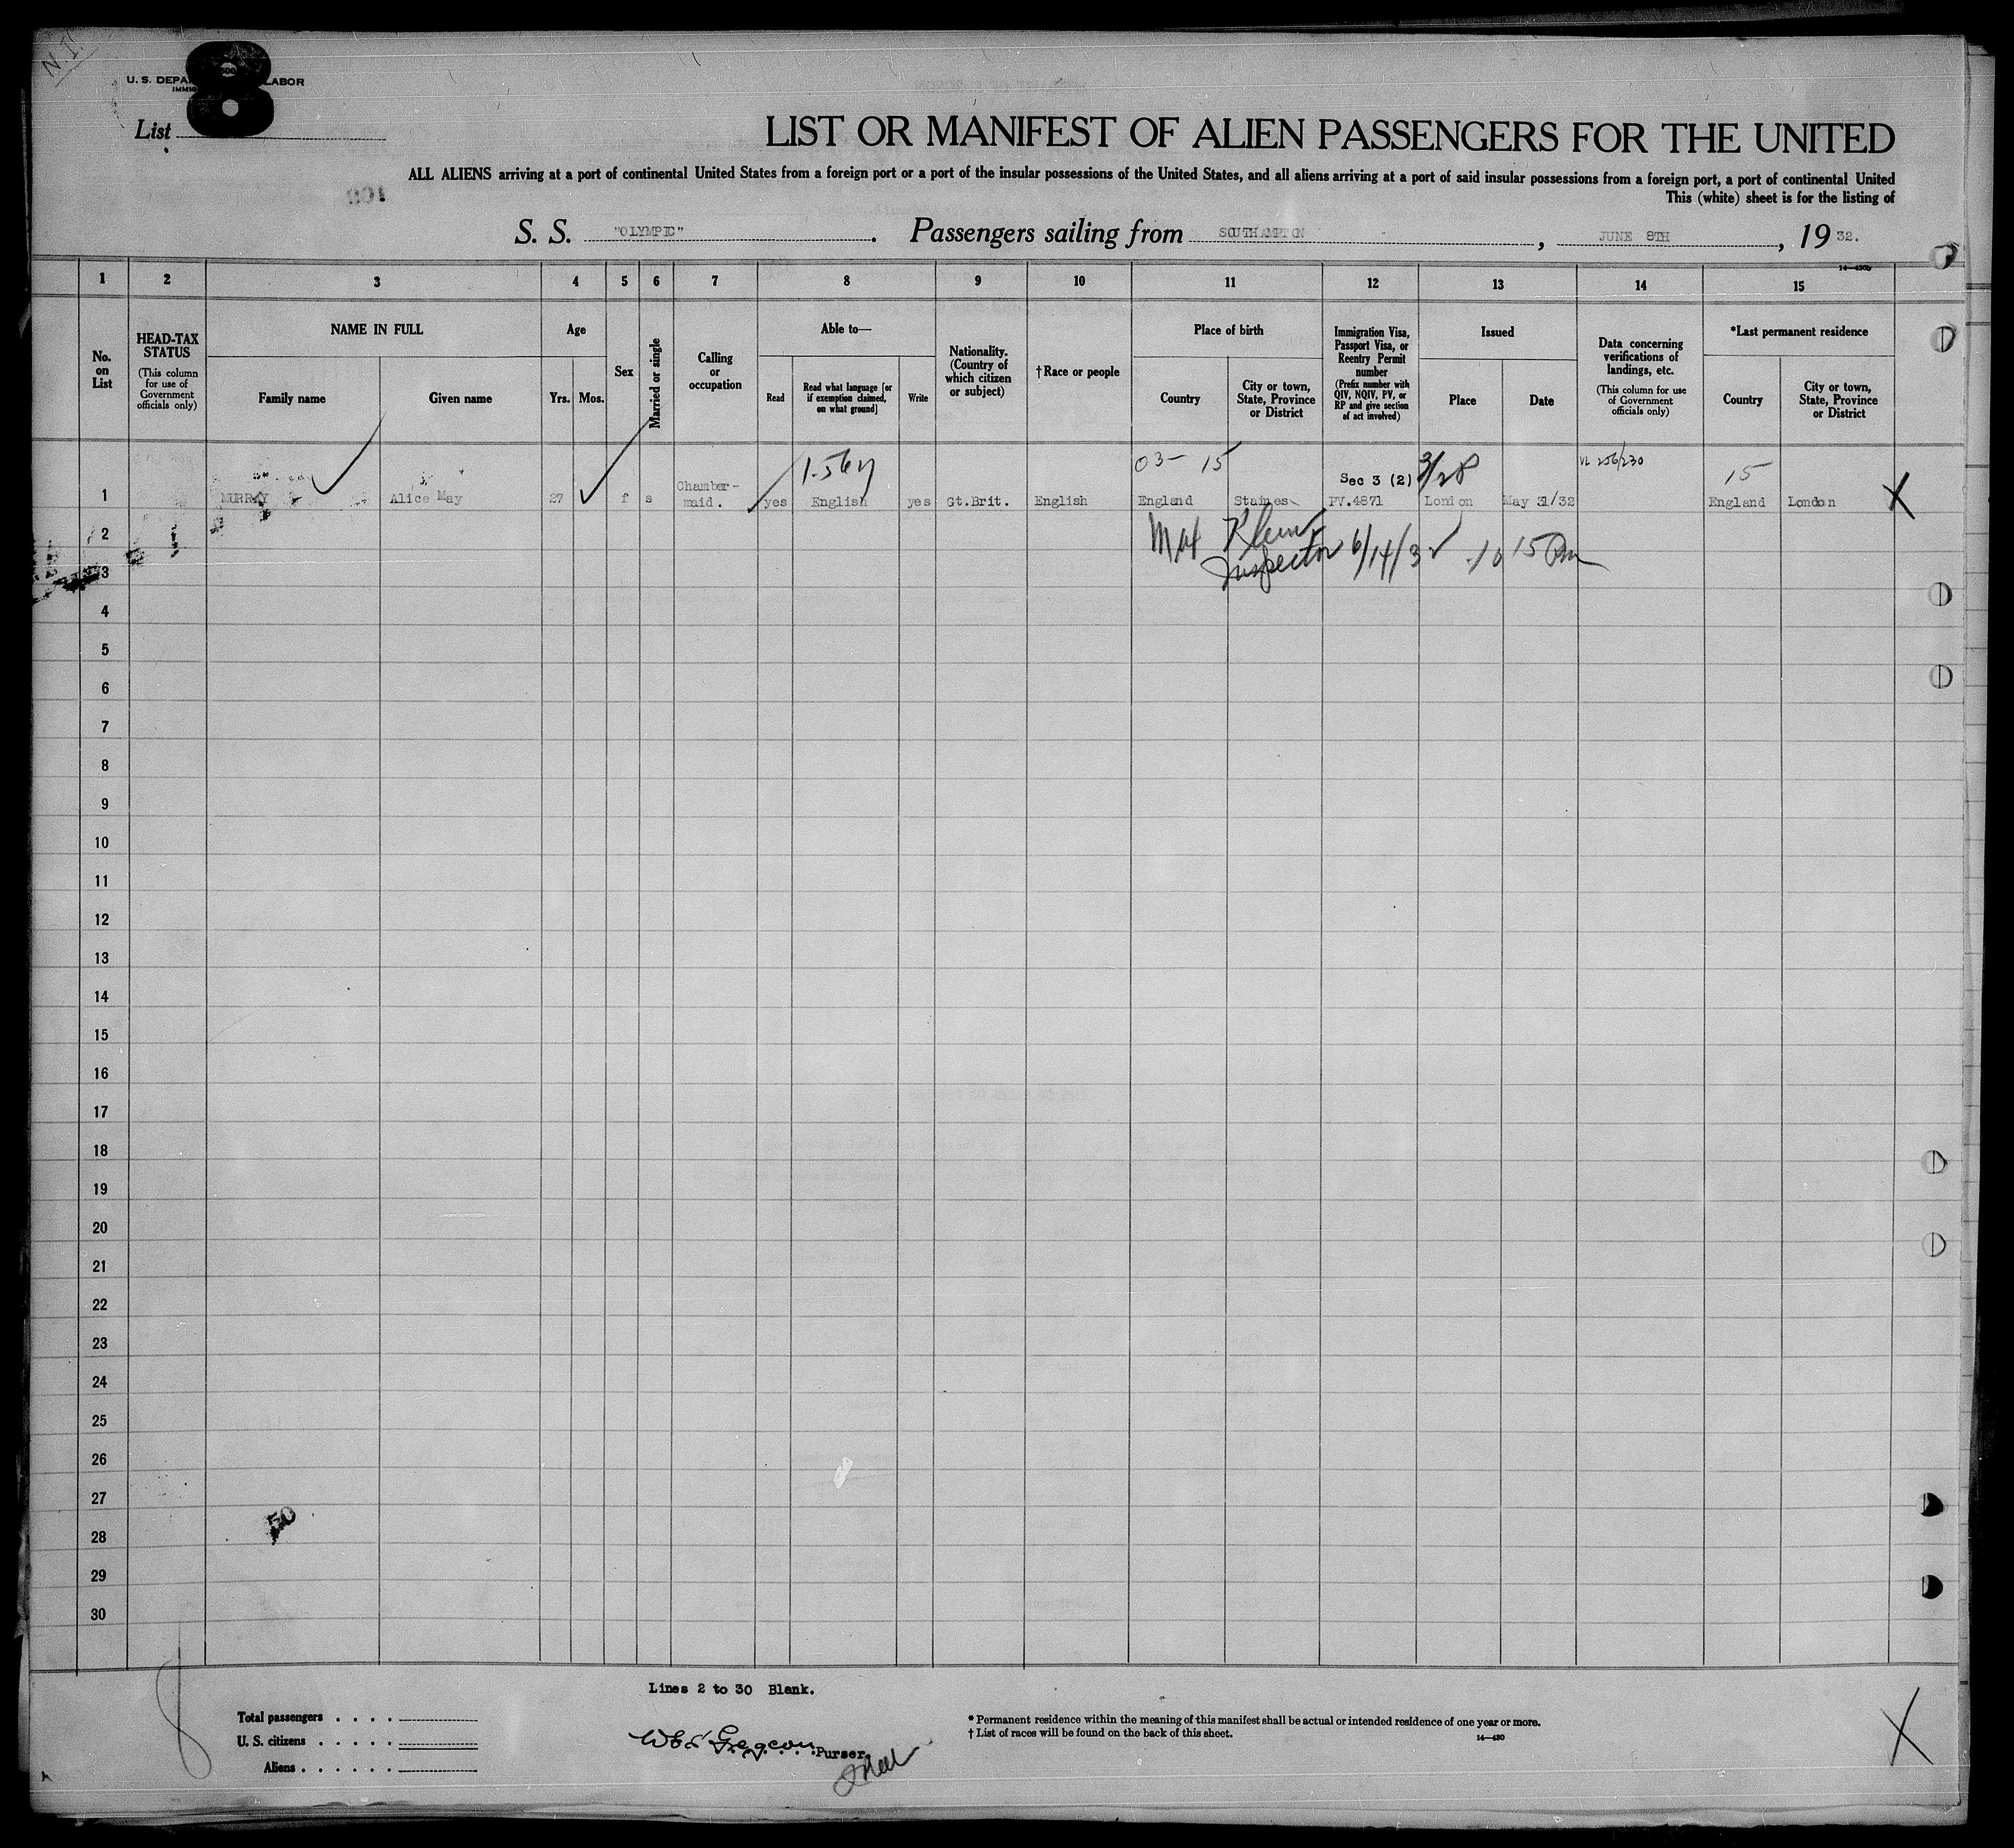 N.I.
8
U. S. DEPA LABOR
IMMIG
List
LIST OR MANIFEST OF ALIEN PASSENGERS FOR THE UNITED
ALL ALIENS arriving at a port of continental United States from a foreign port or a port of the insular possessions of the United States, and all aliens arriving at a port of said insular possessions from a foreign port, a port of continental United
This (white) sheet is for the listing of
S. S. "OLYMPIC". Passengers sailing from SOUTHAMPTON, JUNE 8TH, 1932.
14-430b
1 2 3 4 5 6 7 8 9 10 11 12 13 14 15
No. on List
HEAD-TAX STATUS
(This column for use of Government officials only)
NAME IN FULL
Family name Given name
Age
Yrs. Mos.
Sex
Married or single
Calling or occupation
Able to—
Read
Read what language [or if exemption claimed, on what ground]
Write
Nationality. (Country of which citizen or subject)
†Race or people
Place of birth
Country
City or town, State, Province or District
Immigration Visa, Passport Visa, or Reentry Permit number
(Prefix number with QIV, NQIV, PV, or RP and give section of act involved)
Issued
Place Date
Data concerning verifications of landings, etc.
(This column for use of Government officials only)
*Last permanent residence
Country
City or town, State, Province or District
03- 15 3/28 VL 256/230 15
Sec 3 (2)
1 MURRAY Alice May 27 f s Chamber-maid. yes English yes Gt.Brit. English England Staines PV.4871 London May 31/32 England London X
2
Klein
3
Inspector 6/14/32 10 15 Pm
4
5
6
7
8
9
10
11
12
13
14
15
16
17
18
19
20
21
22
23
24
25
26
27
50
28
29
30
8
Lines 2 to 30 Blank.
Total passengers . . . .
U. S. citizens . . . . .
Aliens . . . . . .
Purser
* Permanent residence within the meaning of this manifest shall be actual or intended residence of one year or more.
† List of races will be found on the back of this sheet.
14-430
X